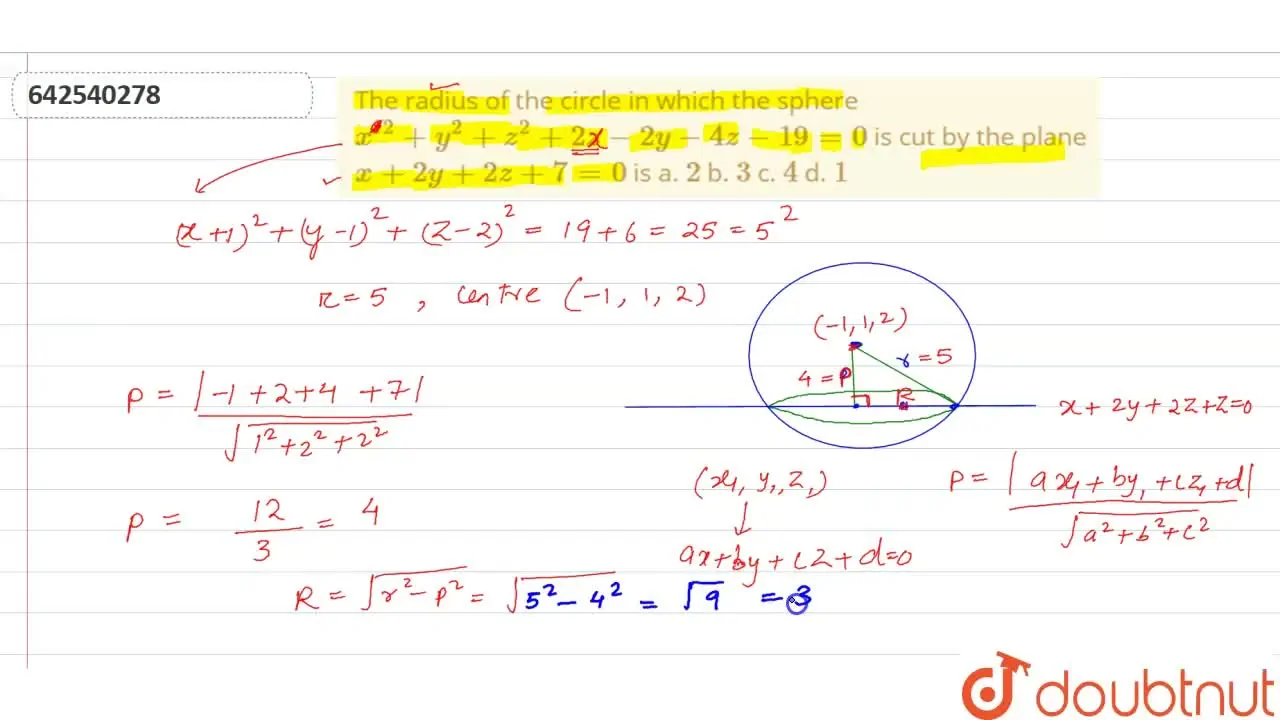 642540278
The radius of the circle in which the sphere
x² + y² + z² + 2x − 2y − 4z − 19 = 0 is cut by the plane
x + 2y + 2z + 7 = 0 is a. 2 b. 3 c. 4 d. 1
(x+1)² + (y-1)² + (z-2)² = 19+6 = 25 = 5²
r=5 , centre (-1, 1, 2)
(-1,1,2)
r=5
4=P
R
x+2y+2z+z=0
P = |-1+2+4 +7| / √(1²+2²+2²)
(x₁, y₁, z₁)
P = |ax₁+by₁+cz₁+d| / √(a²+b²+c²)
P = 12/3 = 4
ax+by+cz+d=0
R = √(r²-p²) = √(5²-4²) = √9 = 3
doubtnut